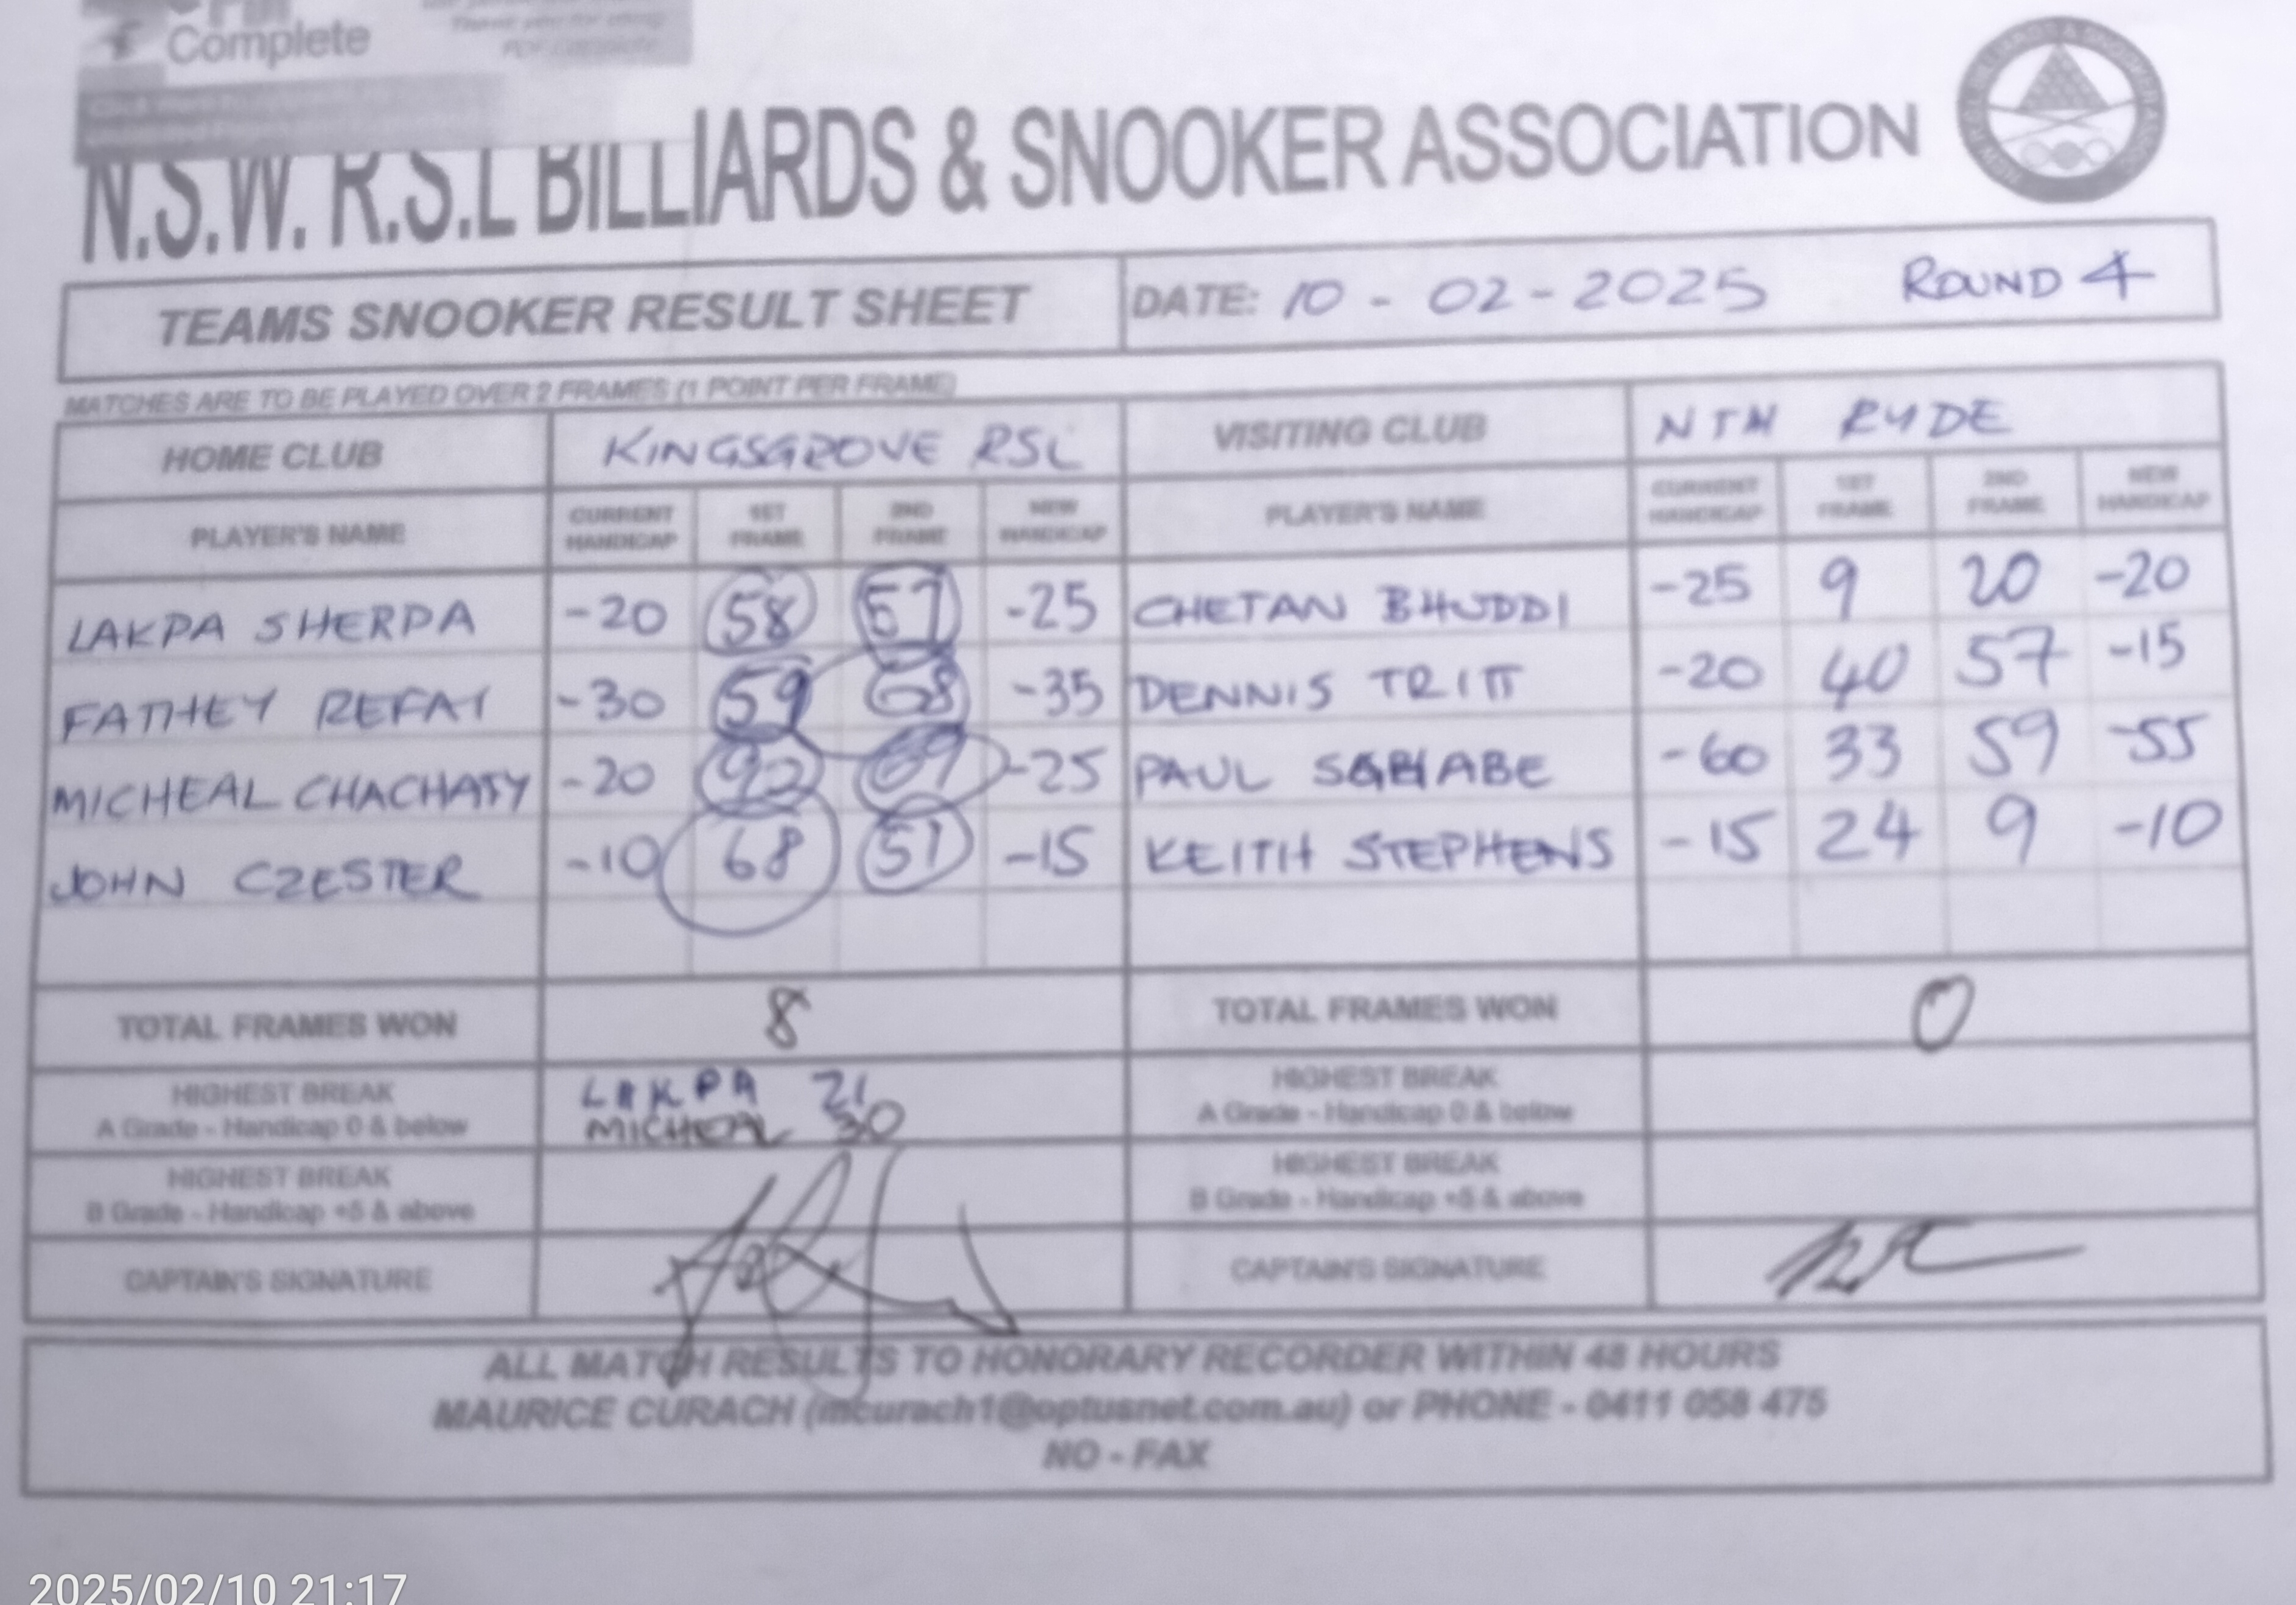 Complete
Thank you for using
PDF Complete
N.S.W. R.S.L BILLIARDS & SNOOKER ASSOCIATION
TEAMS SNOOKER RESULT SHEET DATE: 10 - 02 - 2025 ROUND 4
MATCHES ARE TO BE PLAYED OVER 2 FRAMES (1 POINT PER FRAME)
HOME CLUB KINGSGROVE RSL VISITING CLUB NTH RYDE
PLAYER'S NAME CURRENT HANDICAP 1ST FRAME 2ND FRAME NEW HANDICAP PLAYER'S NAME CURRENT HANDICAP 1ST FRAME 2ND FRAME NEW HANDICAP
LAKPA SHERPA -20 58 57 -25 CHETAN BHUDDI -25 9 20 -20
FATHEY REFAT -30 59 68 -35 DENNIS TRITT -20 40 57 -15
MICHEAL CHACHATY -20 92 69 -25 PAUL -60 33 59 -55
JOHN CZESTER -10 68 51 -15 KEITH STEPHENS -15 24 9 -10
TOTAL FRAMES WON 8 TOTAL FRAMES WON 0
HIGHEST BREAK LAKPA 21 HIGHEST BREAK
A Grade - Handicap 0 & below MICHEAL 30 A Grade - Handicap 0 & below
HIGHEST BREAK HIGHEST BREAK
B Grade - Handicap +5 & above B Grade - Handicap +5 & above
CAPTAIN'S SIGNATURE CAPTAIN'S SIGNATURE
ALL MATCH RESULTS TO HONORARY RECORDER WITHIN 48 HOURS
MAURICE CURACH (mcurach1@optusnet.com.au) or PHONE - 0411 058 475
NO - FAX
2025/02/10 21:17